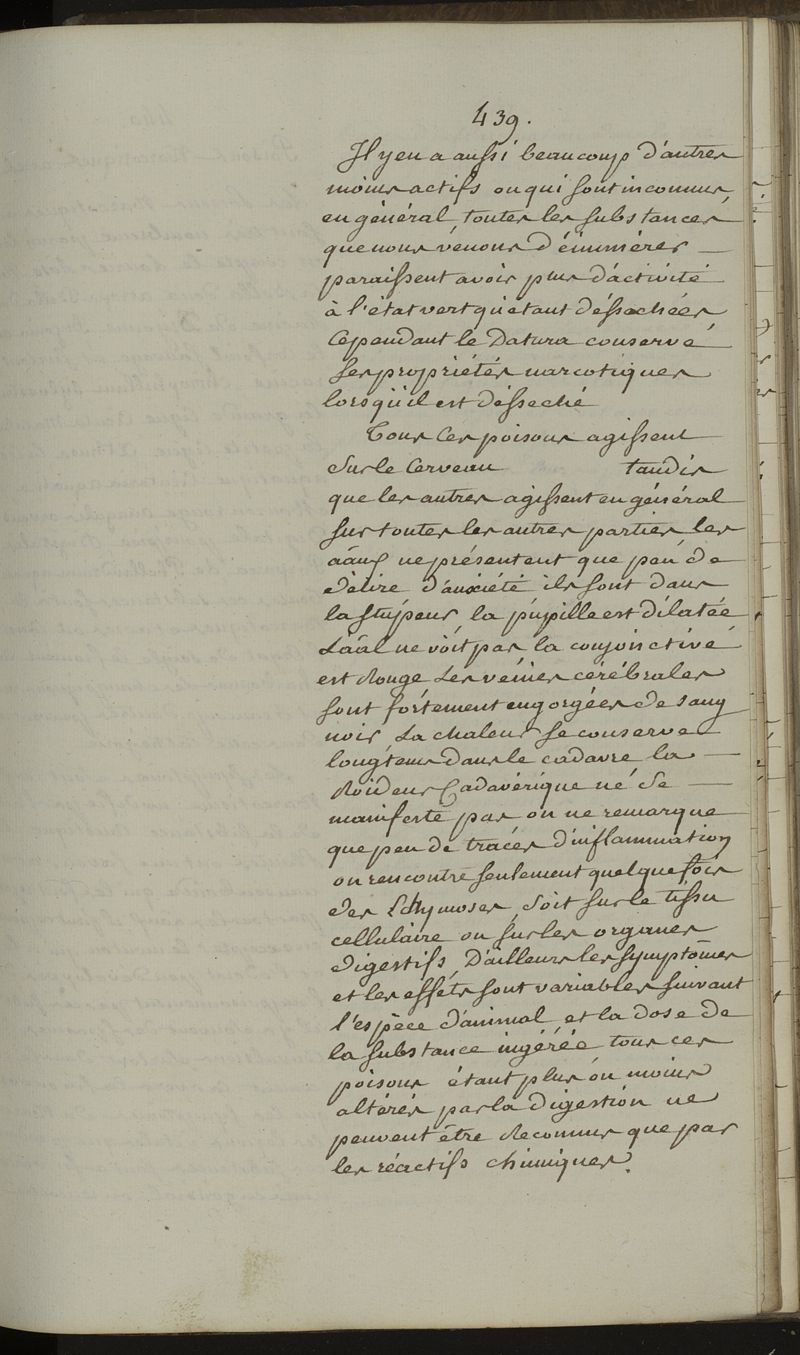 439.
Il y en a aussi beaucoup d'autres
moins actifs ou qui sont inconnus
en général, toutes les substances
que nous vénons d'énumérer
paraissent avoir plus d'activité
à l'état vert qu'étant désséchées
Cependant le Datura conserve
ses propriétés narcotiques
lorsqu'il est désseché
Tous ces poisons agissent
sur le Cerveau tandis
que les autres agissent en général
sur toutes les autres parties les
aãux ne présentent que peu de
délire d'anxiété ils sont dans
la stupeur, la pupille est dilatée
L'aãl ne voit pas, la conjonctive
est Rouge Les veines cérébrales
sont fortement engorgées de sang
noir, La chaleur se conserve
longtems dans le cadavre la
Roideur Cadavérique ne se
manifeste pas on ne remarque
que peu de traces d'inflammation
on rencontre seulement quelque fois
des Echymoses, soit sur le tissu
cellulaire ou sur les organes
Digestifs, D'ailleurs les symptômes
et les effets sont variables suivant
l'espèce d'animal et la dose de
la substance ingérée, tous ces
poisons étant plus ou moins
altérés par la digestion ne
peuvent être Reconnus que par
les réactifs chimiques.